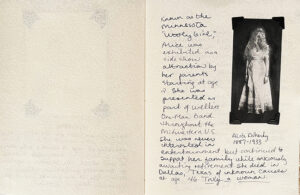 Known as the
Minnesota
"Wooly Girl,"
Alice was
exhibited as a
side show
attraction by
her parents
starting at age
2. She was
presented as
part of Weller's
One-Man Band
throughout the
Midwestern U.S.
She was never
interested in
entertainment but continued to
support her family while anxiously
awaiting retirement. She died in
Dallas, Texas of unknown causes
at age 46. Truly a wonder!
Alice Doherty
1887-1933